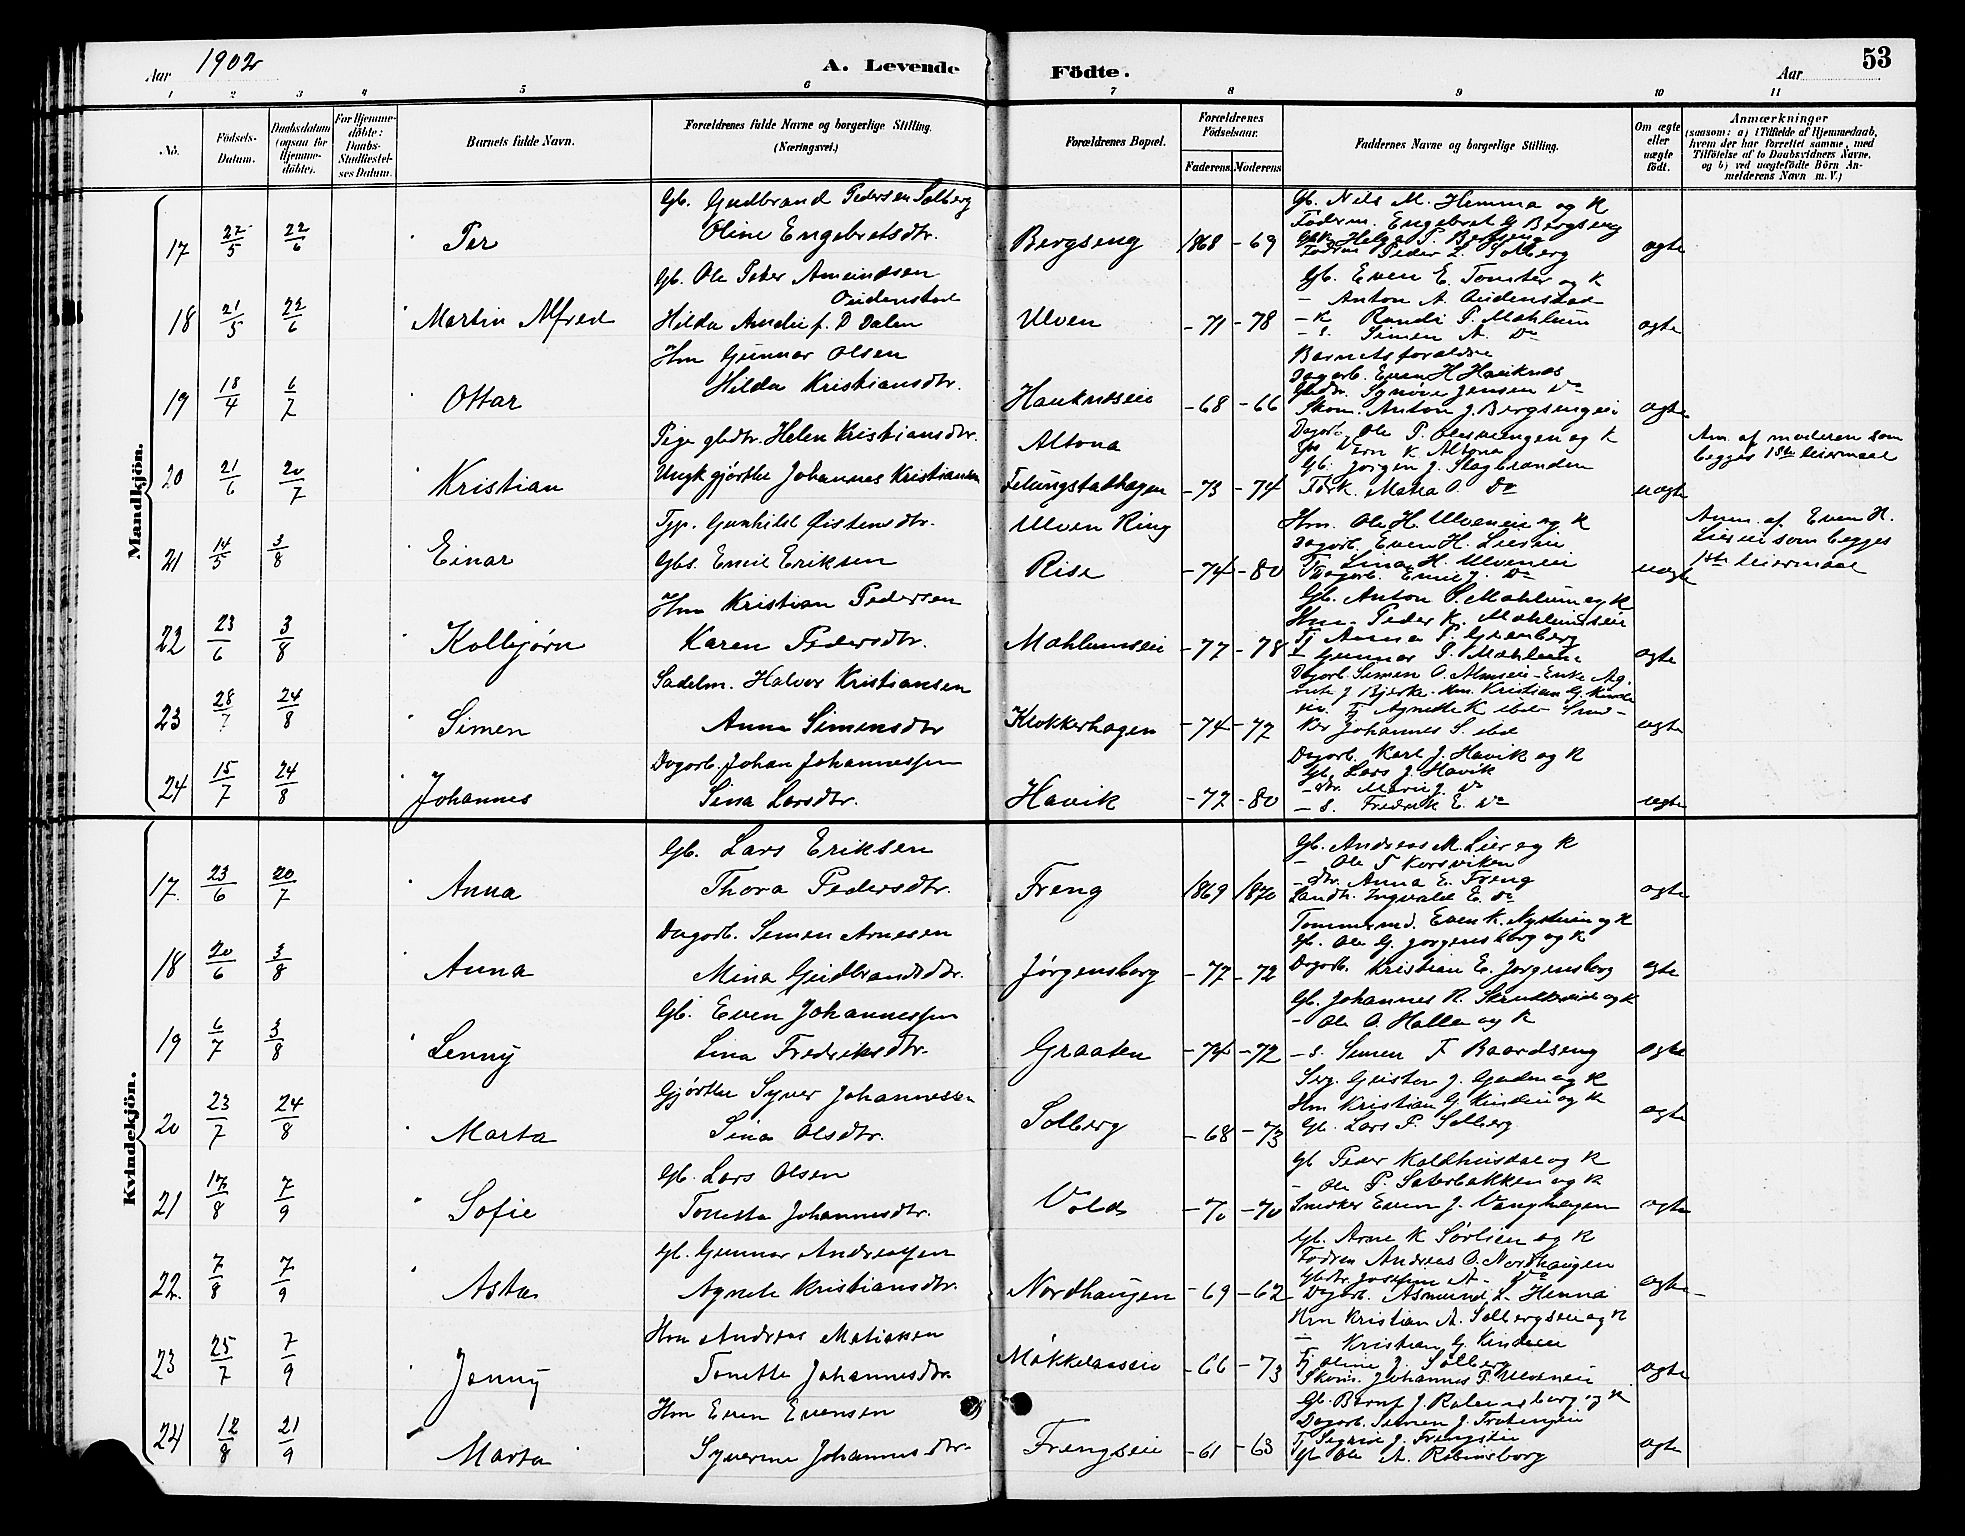 Aar 1902
A. Levende Födte.
Aar
53
1 2 3 4 5 6 7 8 9 10 11
No.
Födsels-Datum.
Daabsdatum (ogsaa for Hjemme-döbte).
For Hjemme-döbte: Daabs-Stadfæstel-ses Datum.
Barnets fulde Navn.
Forældrenes fulde Navne og borgerlige Stilling. (Næringsvei.)
Forældrenes Bopæl.
Forældrenes Födselsaar.
Faderens. Moderens
Faddernes Navne og borgerlige Stilling.
Om ægte eller uægte födt.
Anmærkninger
(saasom: a) i Tilfælde af Hjemmedaab, hvem der har forrettet samme, med Tilföielse af to Daabsvidners Navne, og b) ved uægtefödte Börn Anmelderens Navn m. V.)
Mandkjön.
17 22/5 22/6 Per
Gb. Gudbrand Pedersen Solberg
Oline Engebretsdtr.
Bergseng 1868 -69
Gb. Nels M. Hemma og K
Føderm. Engebret G Bergseng
Helga P. Bergseng
Peder L. Solberg
ægte
18 21/5 22/6 Martin Alfred
Gb. Ole Peter Amundsen
Oudenstad
Hilda Amalie f. D Dalen
Ulven -71 -78
Gb. Even E. Tomter og K
- Anton A. Oudenstad
- K Randi P. Mæhlum
- s. Simen A. Do
ægte
19 18/4 6/7 Ottar
Hm Gunnar Olsen
Hilda Kristiansdtr.
Hauknæseie -68 -66
Barnets forældre
Dagarb. Even H Hauknæs
Gbdtr. Synøve Jensen Do
Skom. Anton J. Bergsengeie
ægte
20 21/6 20/7 Kristian
Pige gbdtr. Helen Kristiansdtr.
Ungk gjørtler Johannes Kristiansen
Altona
Felungstadhagen -73 -74
Dagarb. Ole P. og K
K Altona
Gb. Jørgen J. Slagbranden
Maria O. Do
uægte
Am. af moderen som
begges 1ste leiermaal
21 14/5 3/8 Einar
Tjp. Gunhild Øistensdtr.
Gbs. Emil Eriksen
Ulven Ring
Rise -74 -80
Hm. Ole H. Ulveneie og K
Dagarb. Even H. Liereie
Lina H. Ulveneie
Dagarb. Emil J. Do
uægte
Anm. af Even H.
Liereie som begges
1ste leiermaal
22 23/6 3/8 Kolbjørn
Hm Kristian Pedersen
Karen Pedersdtr.
Mæhlumseie -77 -78
Gb. Anton S. Mæhlum og K
Hm. Peder K. Mæhlumseie
Tj Anna P. Grønberg
- Gunnar P. Mæhlum
ægte
23 28/7 24/8 Simen
Sadelm. Halvor Kristiansen
Anna Simensdtr
Klokkerhagen -74 -77
Dagarb. Simen O. Almseie - Enke Ag-
nete J Bjerke - Hm. Kristian G. Kinde
eie. Tj Agnette K ibd - Sned-
ker Johannes S. ibd
ægte
24 15/7 24/8 Johannes
Dagarb. Johan Johannessen
Sina Larsdtr.
Havik -72 -80
Dagarb. Karl J. Havik og K
Gb. Lars J. Havik
- dtr. Marie J. Do
- s. Fredrik E. Do
ægte
Kvindekjön.
17. 23/6 20/7 Anna
Gb. Lars Eriksen
Thora Pedersdtr.
Freng 1869 1870
Gb. Andreas M. Lier og K
- Ole T Korsviken
- dtr. Anna E. Freng
Landh. Ingvald E. Do
ægte
18 20/6 3/8 Anna
Dagarb. Simen Arnesen
Mina Gudbrandsdtr.
Jørgensborg -77 -72
Tømmermd. Even K. Nystuen og K
Gb. Ole G. Jørgensborg og K
Dagarb. Kristian E. Jørgensborg
ægte
19 6/7 3/8 Lenny
Gb. Even Johannessen
Lina Fredriksdtr.
Graaten -74 -72
Gb. Johannes R. Skrukkerud og K
- Ole O. Halla og K
- s. Simen F Baardseng
ægte
20 23/7 24/8 Marta
Gjørtler Syver Johannessen
Sina Olsdtr.
Solberg -68 -73
Serg. Gustav J. Gaden og K
Hm Kristian G. Kindeie og K
Gb. Lars P. Solberg
ægte
21 17/8 7/9 Sofie
Gb. Lars Olsen
Tonetta Johannesdtr.
Volds -70 -70
Gb Peder Koldhusdal og K
- Ole P. Sæterbakken og K
Snedker Even J. Vanghagen
ægte
22. 7/8 7/9 Asta
Gb. Gunnar Andreassen
Agnete Kristiansdtr.
Nordhaugen -69 -62
Gb. Arne K Sørlien og K
Føderm Andreas O. Nordhaugen
Gbdtr. Josefine A. Do
Dagarb. Asmund L. Henna
ægte
23 25/7 7/9 Jenny
Hm Andreas Matiassen
Tonette Johannesdtr.
Møkkelaaseie -66 -73
Hm Kristian A. Solbergseie og K
- Kristian G. Kindeie
Tj Oline J. Solberg
Skom. Johannes P. Ulveneie
ægte
24 12/8 21/9 Marta
Hm Even Evensen
Syverine Johannesdtr.
Frengseie -61 -63
Gb. Bernt J. og K
Dagarb. Simen J. Frengseie
Tj Sigrid J. Frengseie
Gb Ole A. Robinsborg
ægte